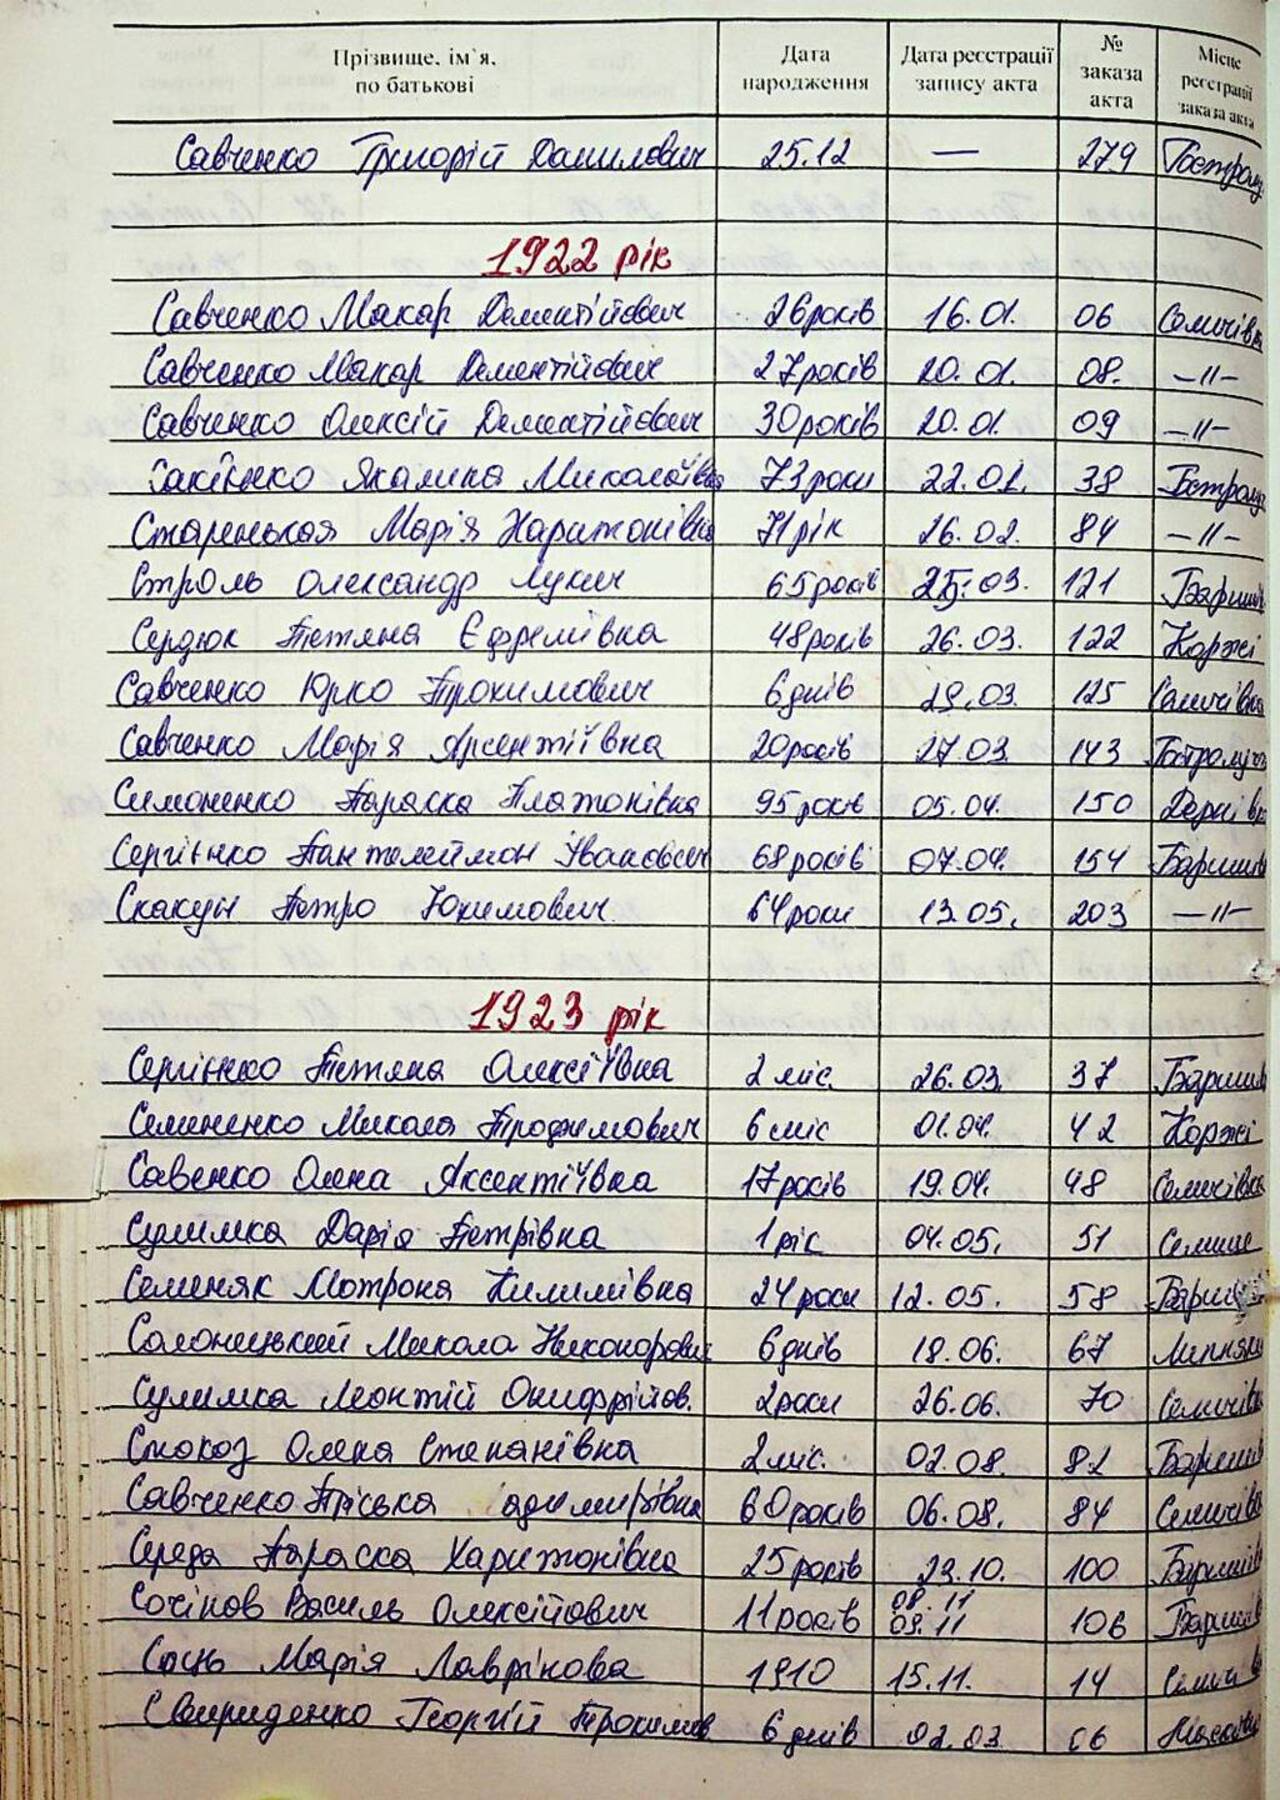 Прізвище, ім`я, по батькові Дата народження Дата реєстрації запису акта № заказа акта Місце реєстрації заказа акта
Савченко Григорій Данилович 25.12 — 279 Гостролу
1922 рік
Савченко Макар Дементійович 26років 16.01. 06 Семчівк
Савченко Макар Дементійович 27років 20.01. 08. –//–
Савченко Олексій Дементійович 30років 20.01. 09 –//–
Якилина Миколаївна 73роки 22.01. 38
Старенькая Марія Харитонівна 71рік 26.02. 84 –//–
Строль Олександр Лукич 65років 25.03. 121 Бариш
Сердюк Тетяна Єфремівка 48років 26.03. 122 Коржі
Савченко Юрко Трохимович 6днів 29.03. 125
Савченко Марія Арсентіївна 20років 27.03. 143 Гостролуч
Симоненко Параска Платонівна 95років 05.04. 150 Дернівк
Сергієнко Пантелеймон Іванович 68років 07.04. 154 Бариш
Скакун Петро Юхимович 64роки 13.05. 203 –//–
1923 рік
Сергієнко Тетяна Олексіївна 2 міс. 26.03. 37 Бариш
Семененко Микола Трохимович 6 міс 01.04. 42 Коржі
Савенко Олена Аксентіївна 17років 19.04. 48 Семчівка
Сулимка Дарія Петрівна 1 рік 04.05. 51
Семеняк Мотрона Килимівна 24роки 12.05. 58 Бариш
Солоницький Микола Никонорович 6днів 18.06. 67 Липняки
Сулимка Леонтій Онифрійов. 2роки 26.06. 70 Семчівк
Стокоз Олена Степанівна 2міс. 02.08. 82 Бариш
Савченко Пріська 60років 06.08. 84 Семчівк
Середа Параска Харитонівна 25років 23.10. 100 Баришів
Василь Олексійович 11років 08.11 09.11 106 Бариш
Марія Лаврікова 1910 15.11. 14
Свириденко Георгій Трохимов 6 днів 02.03 06